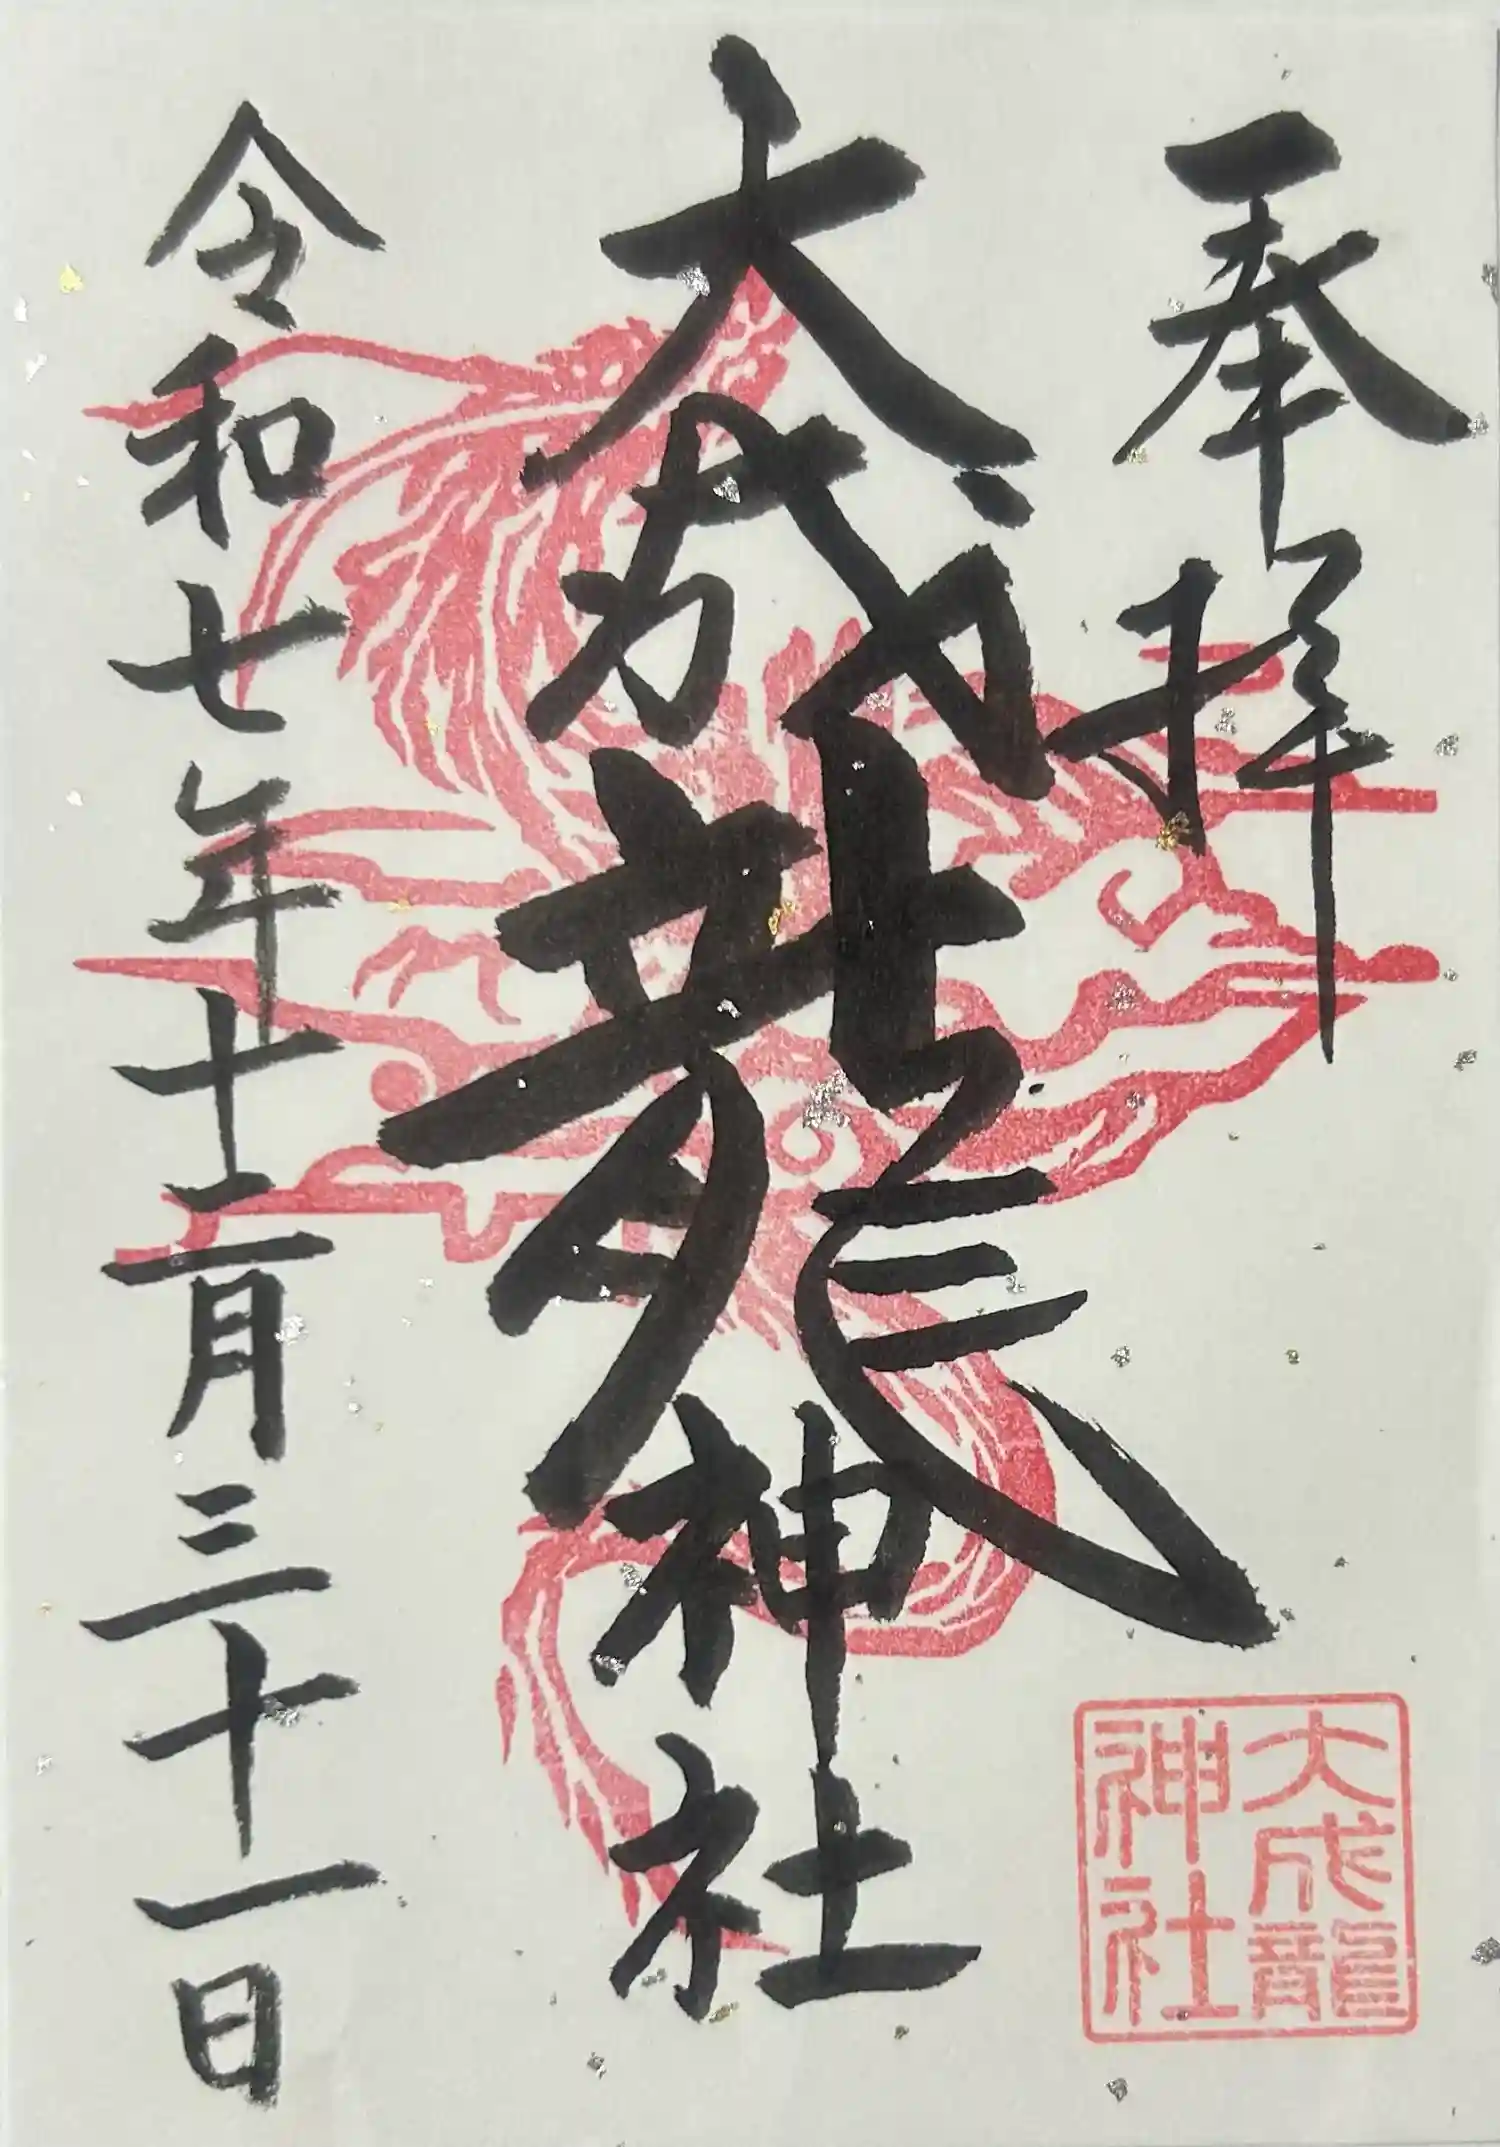 奉拝
大成龍神社
令和七年十二月三十一日
大成龍
神社